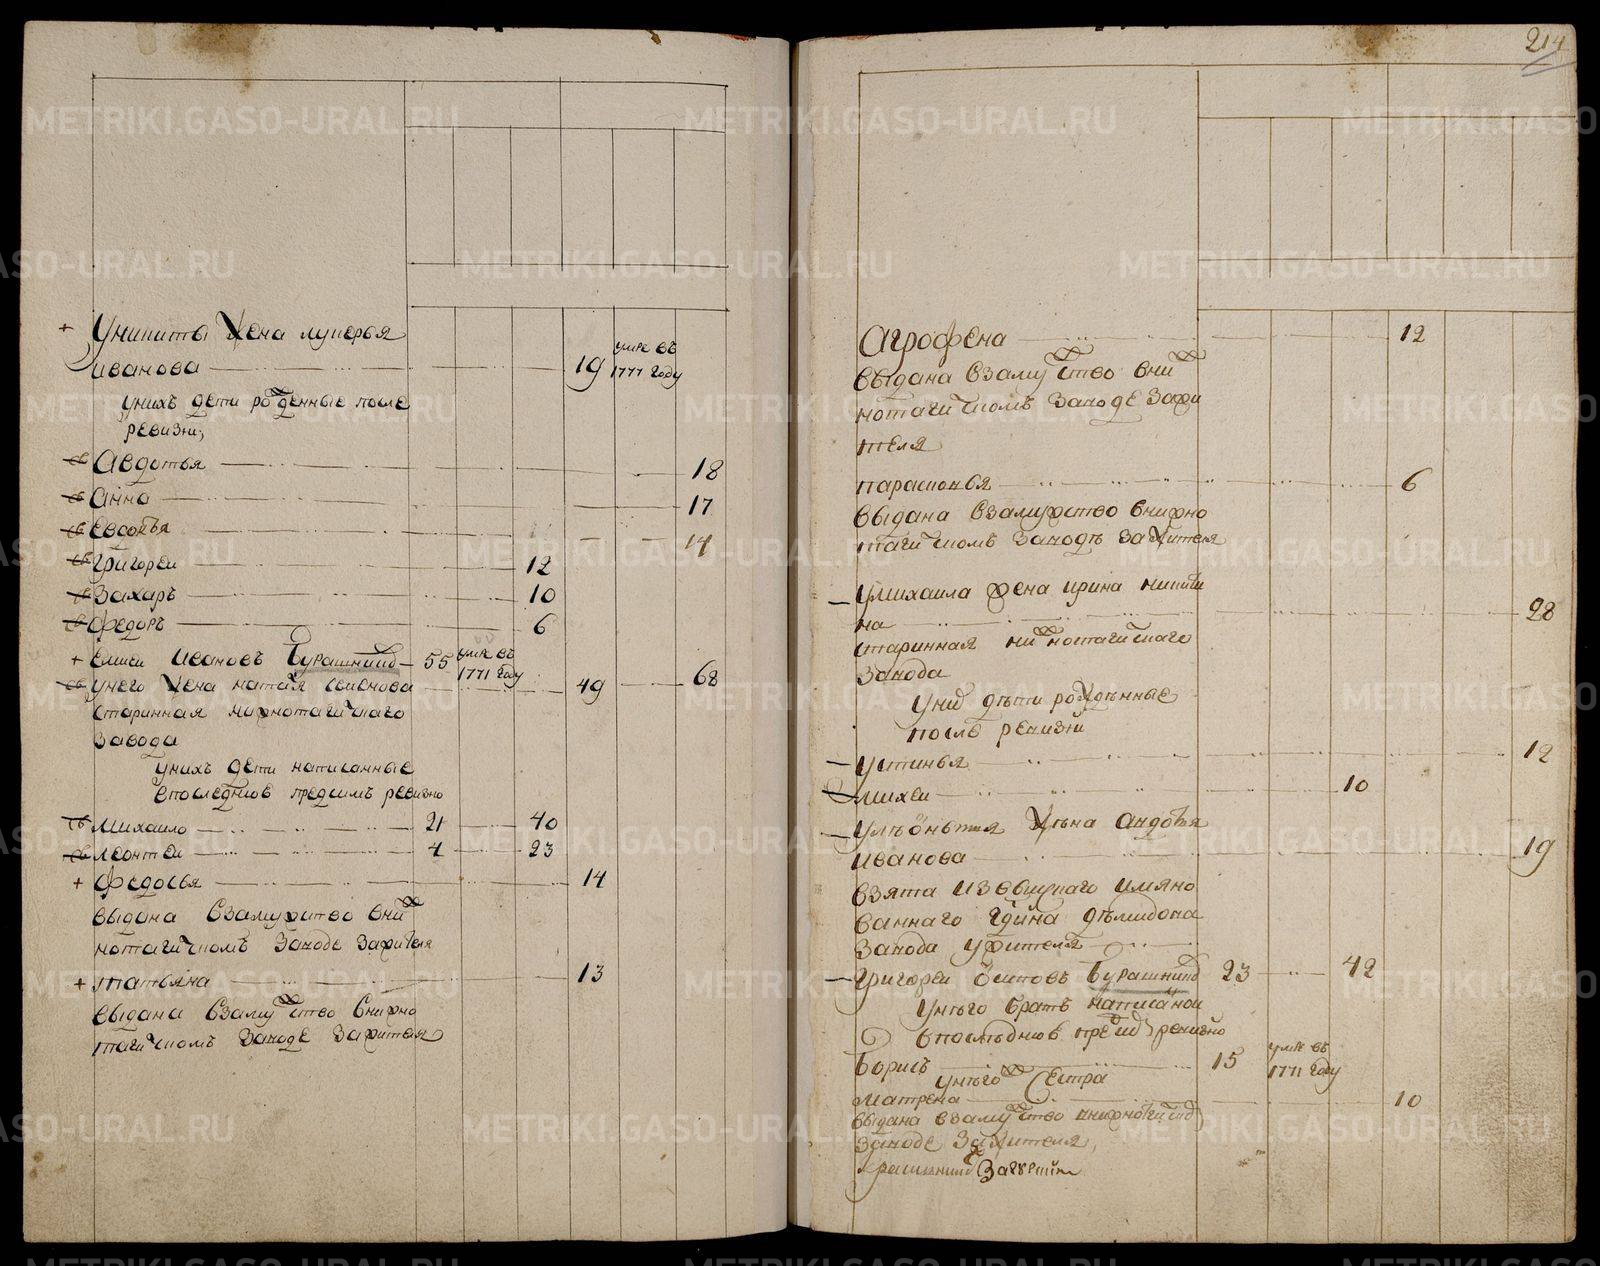 214
Уникиты жена лукерья
иванова 19 умре въ 1777 году
унихъ дети рожденные после
ревизии,
Авдотья 18
Анна 17
Евсофья 14
Григореи 12
Захаръ 10
Федоръ 6
Елисеи ивановъ Бурашников 55 умре въ 1771 году
унего жена наталья семенова 49 68
старинная нижнотагилскаго
завода
унихъ дети написанные
впоследнюю предсимъ ревизию
Михаило 21 40
леонтеи 4 23
Федосья 14
выдана взамужство вниж
нотагилскомъ заводе зажителя
татьяна 13
выдана взамужство внижно
тагилскомъ заводе зажителя
Агрофена 12
выдана взамужство вниж
нотагилскомъ заводе зажи
теля
парасковья 6
выдана взамужство внижно
тагилскомъ заводъ зажителя
умихаила жена ирина никити
на 28
старинная нижнотагилскаго
завода
унихъ дети рожденные
после ревизии
устинья 12
михеи 10
улеонтия жена Авдотья
иванова 19
взята изъ
ваннаго демидова
завода ужителя
Григореи осиповъ Бурашников 23 42
унего братъ написанои
впоследнюю предсимъ ревизию
Борисъ 15 умре въ 1771 году
унего сестра
матрена 10
выдана взамужство внижнотагилском
заводе зажителя,